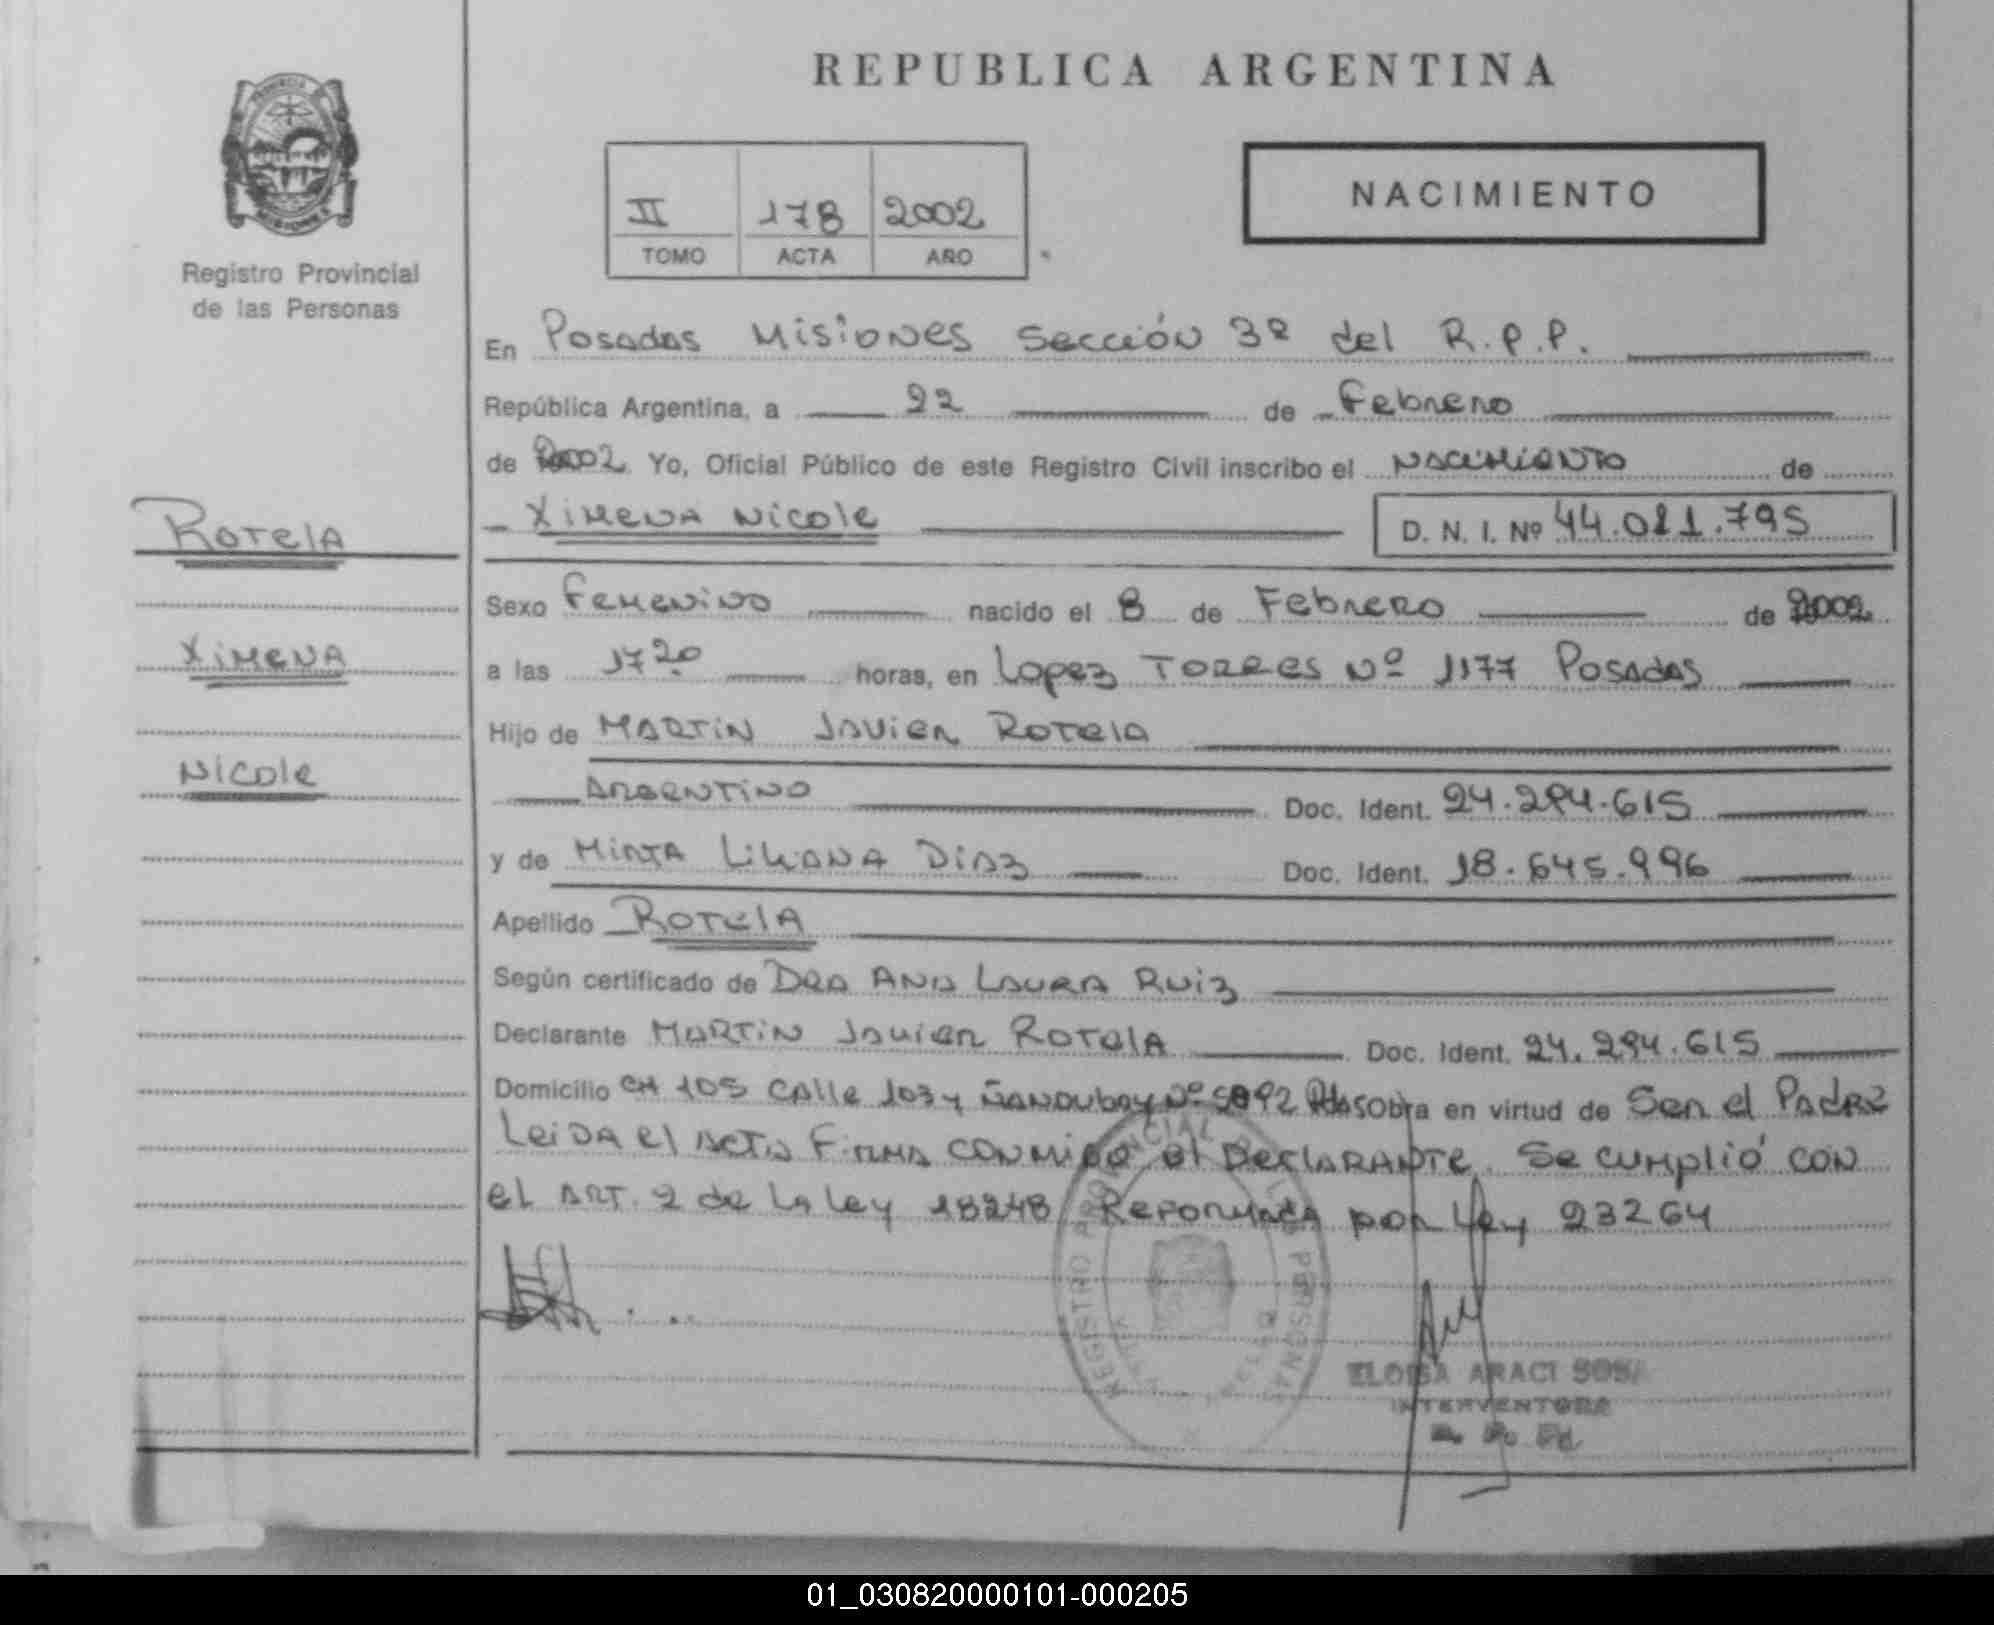 REPUBLICA ARGENTINA
Registro Provincial
de las Personas
II 178 2002
TOMO ACTA AÑO
NACIMIENTO
En Posadas Misiones Sección 3ª del R.P.P.
República Argentina, a 22 de Febrero
de 2002 Yo, Oficial Público de este Registro Civil inscribo el nacimiento de
Ximena Nicole D. N. I. Nº 44.011.795
Rotela
Sexo Femenino nacido el 8 de Febrero de 2002
Ximena
a las 17 20 horas, en Lopez Torres Nº 1177 Posadas
Hijo de Martin Javier Rotela
Nicole
Argentino Doc. Ident. 24.294.615
y de Mirta Liliana Diaz Doc. Ident. 18.645.996
Apellido Rotela
Según certificado de Dra Ana Laura Ruiz
Declarante Martin Javier Rotela Doc. Ident. 24.294.615
Domicilio CH 105 Calle 103 y Ñandubay Nº Obra en virtud de Ser el Padre
Leida el acta Firma conmigo el Declarante. Se cumplió con
el Art. 2 de la ley 18248 Reformada por Ley 23264
REGISTRO PROVINCIAL DE LAS PERSONAS
ELOISA ARACI SOSA
INTERVENTORA
01_030820000101-000205